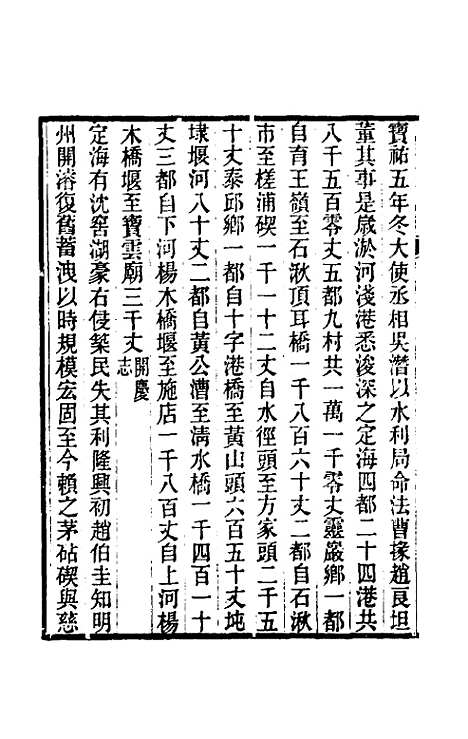 寶祐五年冬大使丞相吳潛以水利局命法曹掾趙良坦
董其事是歲淤河淺港悉浚深之定海四都二十四港共
八千五百零丈五都九村共一萬一千零丈靈巖鄉一都
自育王嶺至石湫頂耳橋一千八百六十丈二都自石湫
市至槎浦碶一千一十二丈自水徑頭至方家頭二千五
十丈泰邱鄉一都自十字港橋至黃山頭六百五十丈坉
埭堰河八十丈二都自黃公漕至淸水橋一千四百一十
丈三都自下河楊木橋堰至施店一千八百丈自上河楊
木橋堰至寶雲廟三千丈開慶志
定海有沈窖湖豪右侵築民失其利隆興初趙伯圭知明
州開濬復舊蓄洩以時規模宏固至今賴之茅砧碶與慈